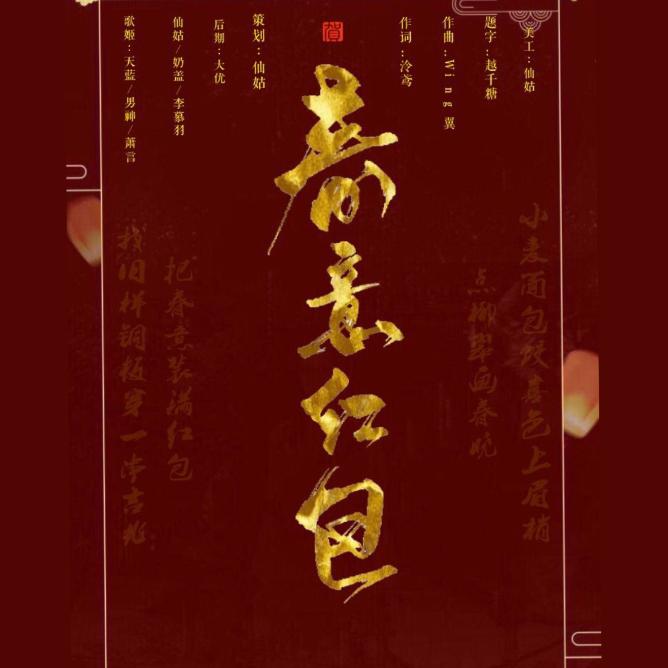 美工：仙姑
题字：越千糖
作曲：Wing翼
作词：泠鸢
賀
春意红包
策划：仙姑
后期：大优
仙姑/奶盖/李慕羽
歌姬：天蓝/男神/萧言
小麦面包绞喜色上眉梢
点柳翠画春晓
把春意装满红包
找旧样铜板穿一串吉兆